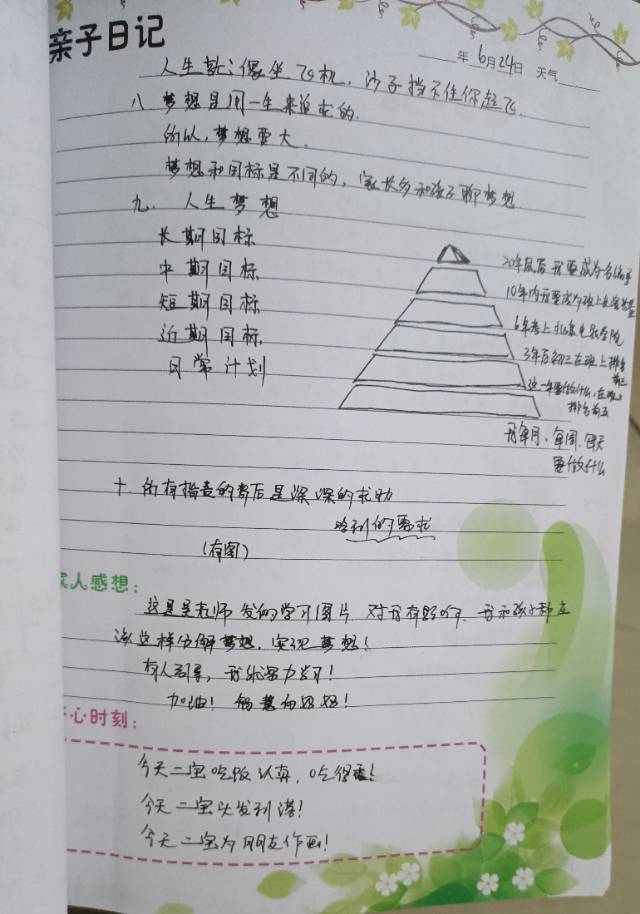 亲子日记
年 6月24日 天气
人生就像坐飞机，沙子挡不住你起飞．
八 梦想是用一生来追求的．
所以，梦想要大．
梦想和目标是不同的，家长多和孩子聊梦想
九． 人生梦想
长期目标
中期目标
短期目标
近期目标
日常计划
20年后我要成为
10年内我要成为班上
6年考上 电影学院
3年后初三在班上排名前三
这一年要做什么，在班上排名前五
每年月、每周、每天
要做什么
十 所有指责的背后是深深的求助
的要求
（有图）
家人感想：
这是吴老师发的学习图片 对我有影响，我和孩子都应
该这样分解梦想，实现梦想！
有人引导，我就努力学习！
加油！智慧的妈妈！
开心时刻：
今天二宝吃饭认真，吃得香！
今天二宝头发到港！
今天二宝为朋友作画！